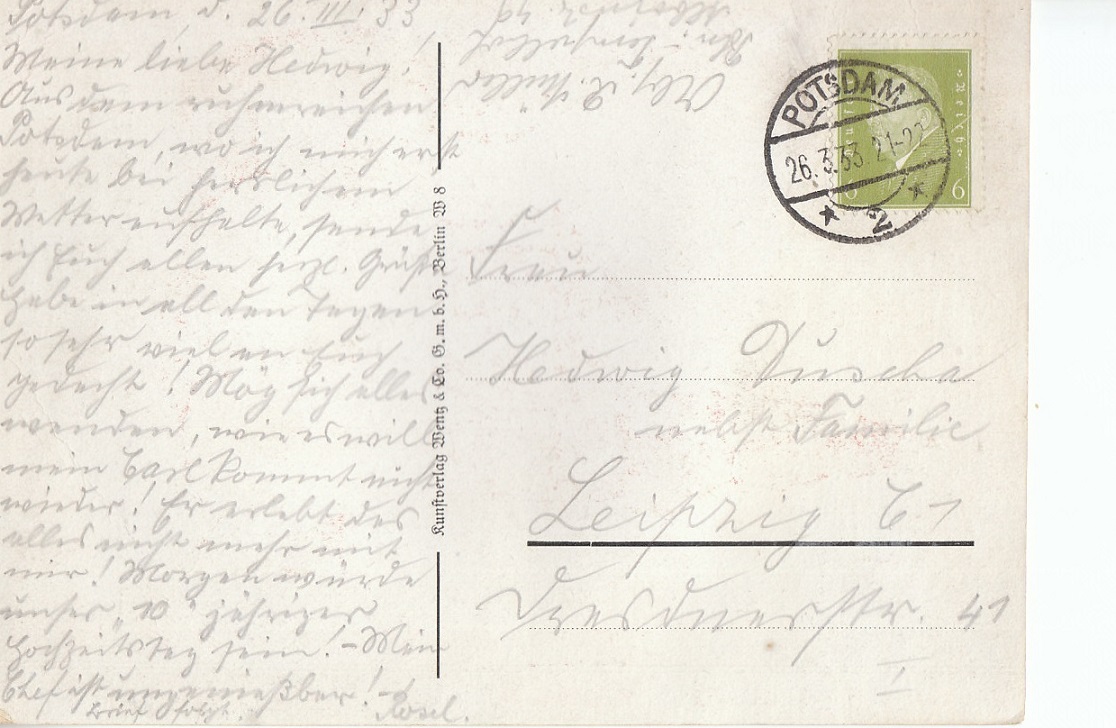 Potsdam, d. 26. III. 33
Meine liebe Hedwig!
Aus dem ruhmreichen
Potsdam, wo ich mich erst
heute bei herrlichem
Wetter aufhalte, sende
ich Euch allen herzl. Grüße
Habe in all den Tagen
so sehr viel an Euch
gedacht! Mög sich alles
wenden, wie es will
mein Carl kommt nicht
wieder! Er erlebt das
alles nicht mehr mit
mir! Morgen würde
unser „10" jähriger
Hochzeitstag sein! - Mein
Chef ist ungenießbar!
Brief folgt. Rosel.
Kunstverlag Wentz & Co. G. m. b. H., Berlin W 8
Müller
POTSDAM
26.3.33.21-22
* 2 *
Deutsches Reich
6 6
Frau
Hedwig Duscha
nebst Familie
Leipzig C-1
Dresdnerstr. 41
I